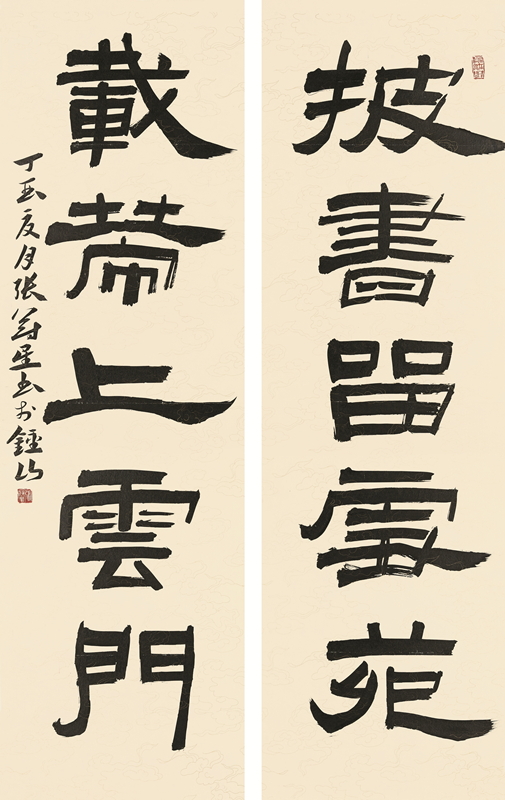 披書留苑
載帶上雲門
丁酉夏月張星書於鍾山